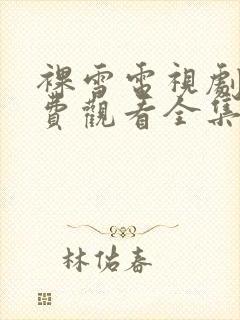 裸雪電視劇
費觀看全集
林佑春